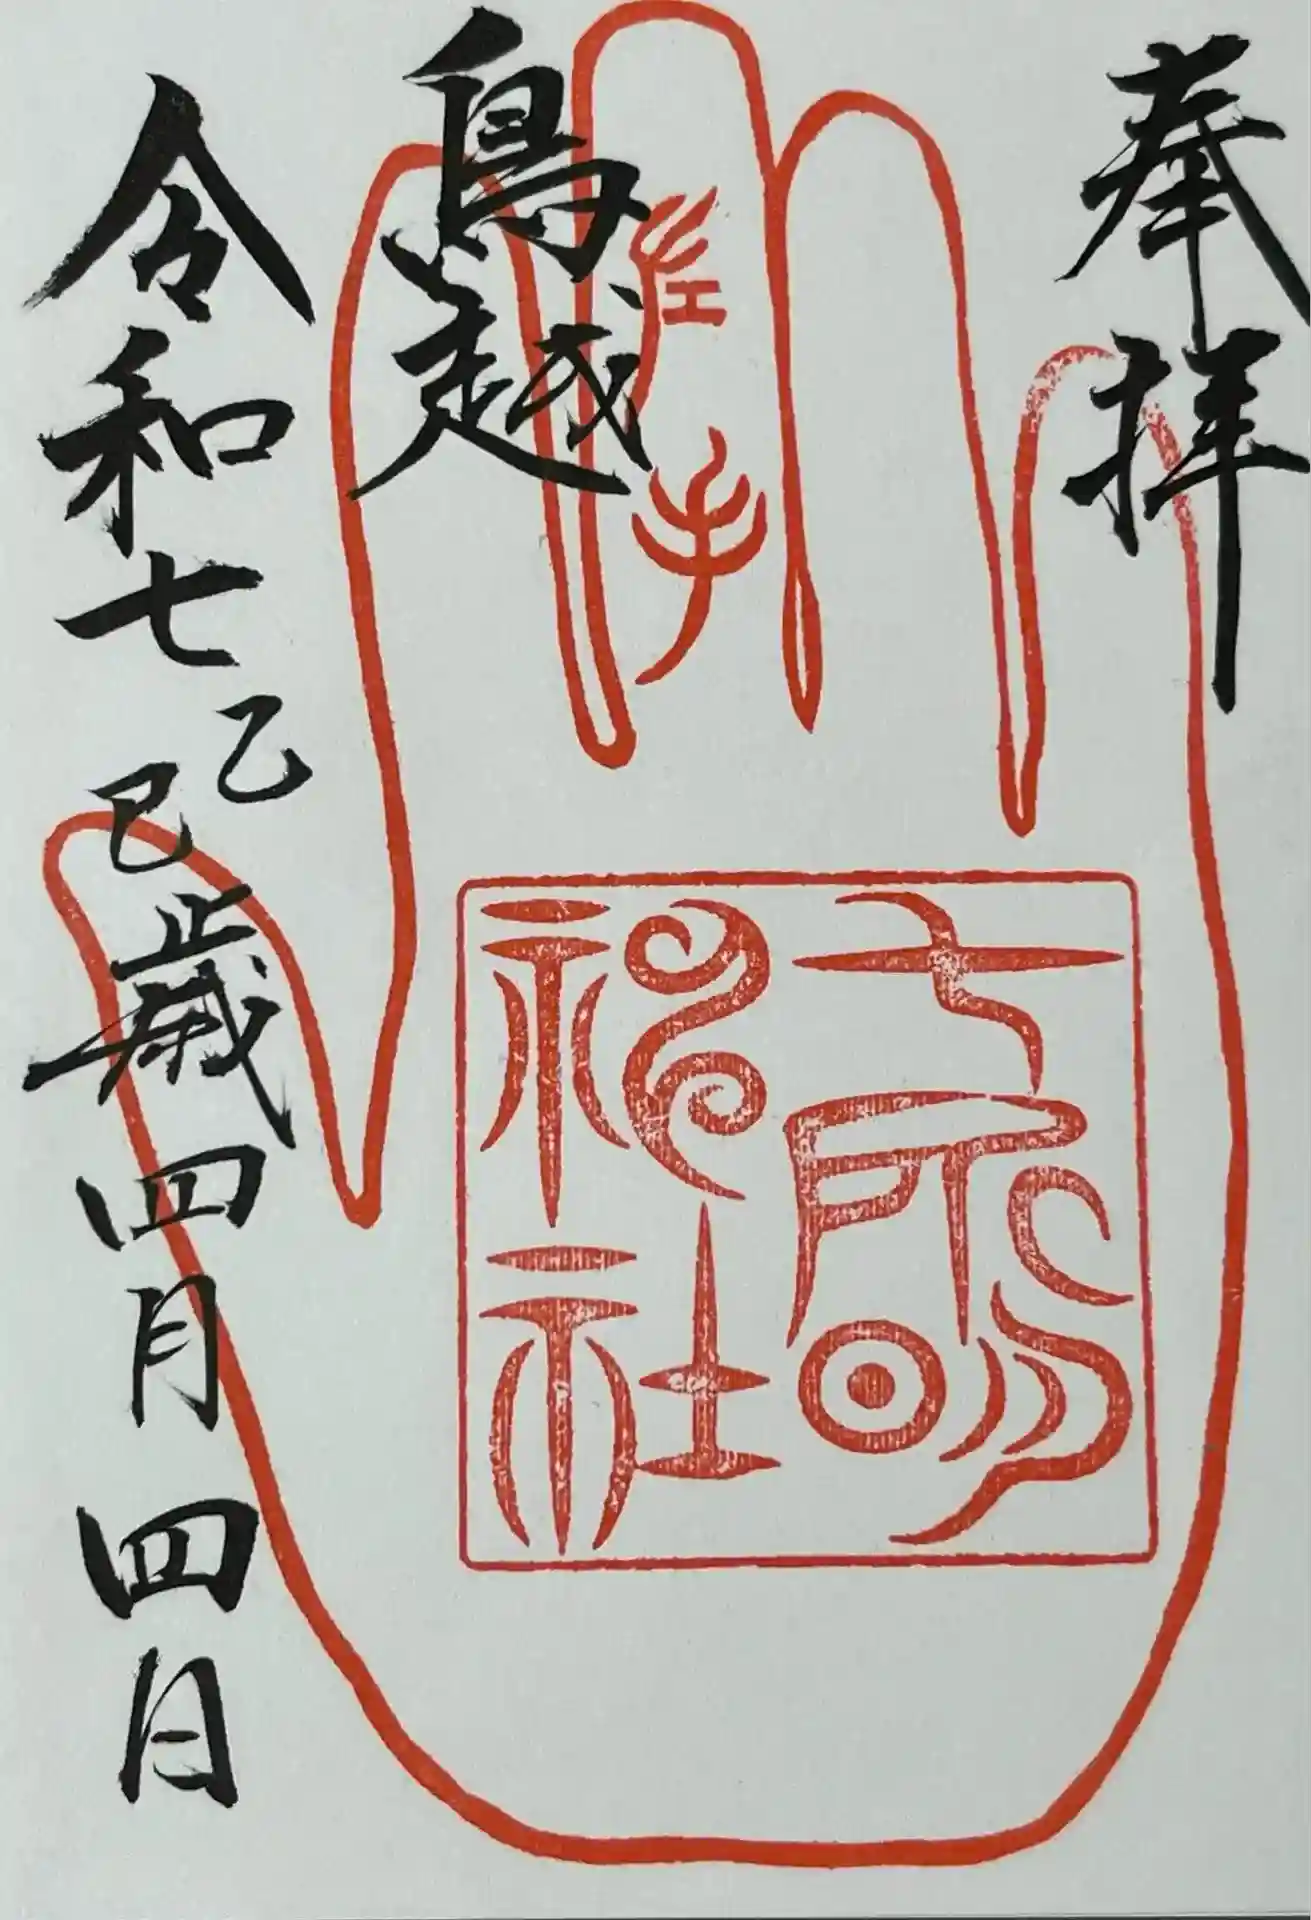 奉拝
鳥越
左手
七所明
神社
令和七乙巳歳四月四日